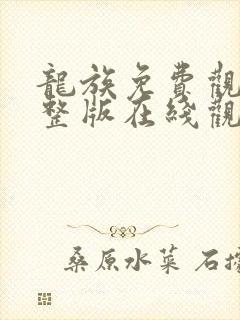 龍族免費觀
整版在綫觀
桑原水菜 石